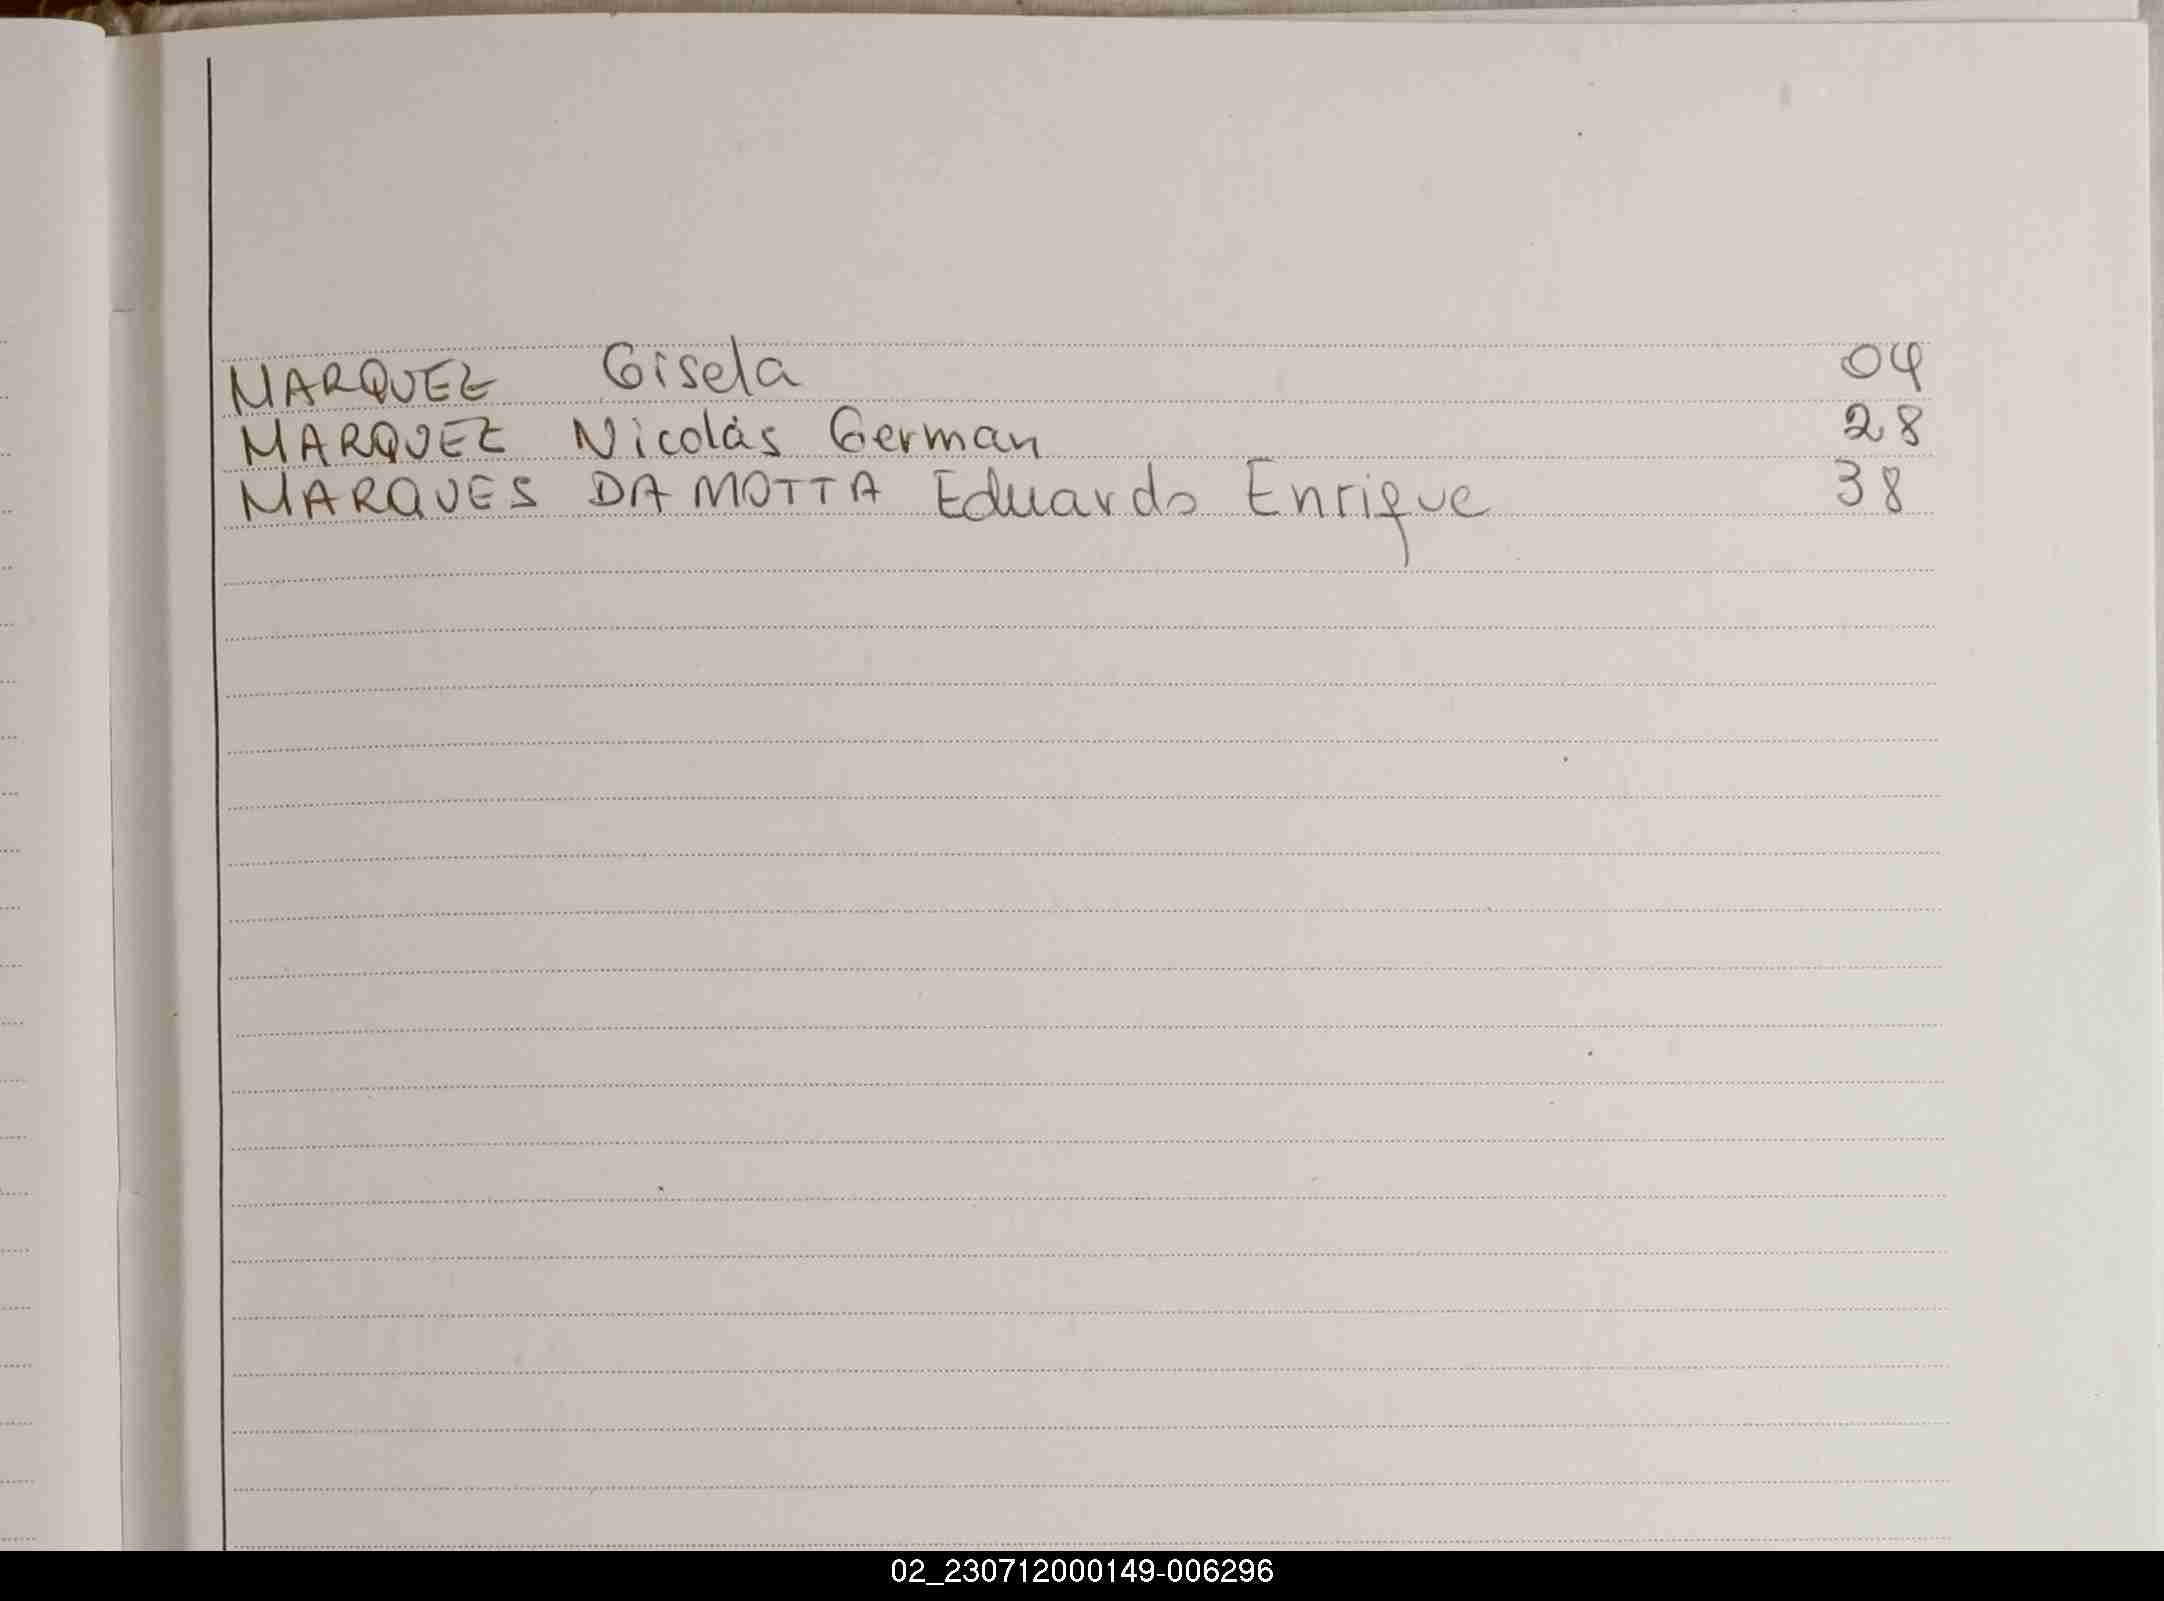 MARQUEZ Gisela 04
MARQUEZ Nicolás German 28
MARQUES DA MOTTA Eduardo Enrique 38
02_230712000149-006296